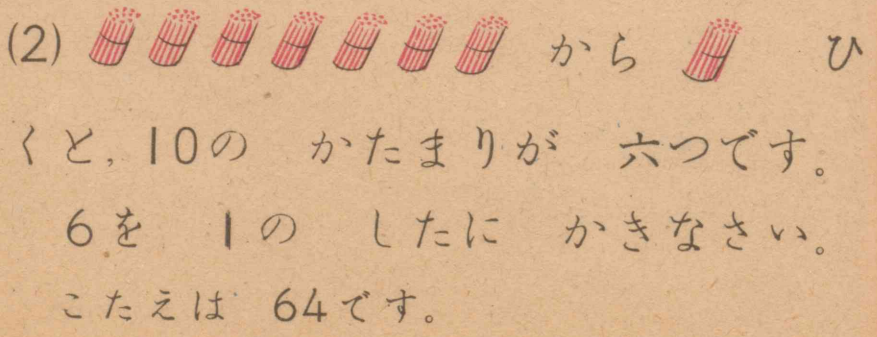 (2) から ひ
くと,10の かたまりが 六つです。
6を 1の したに かきなさい。
こたえは 64です。